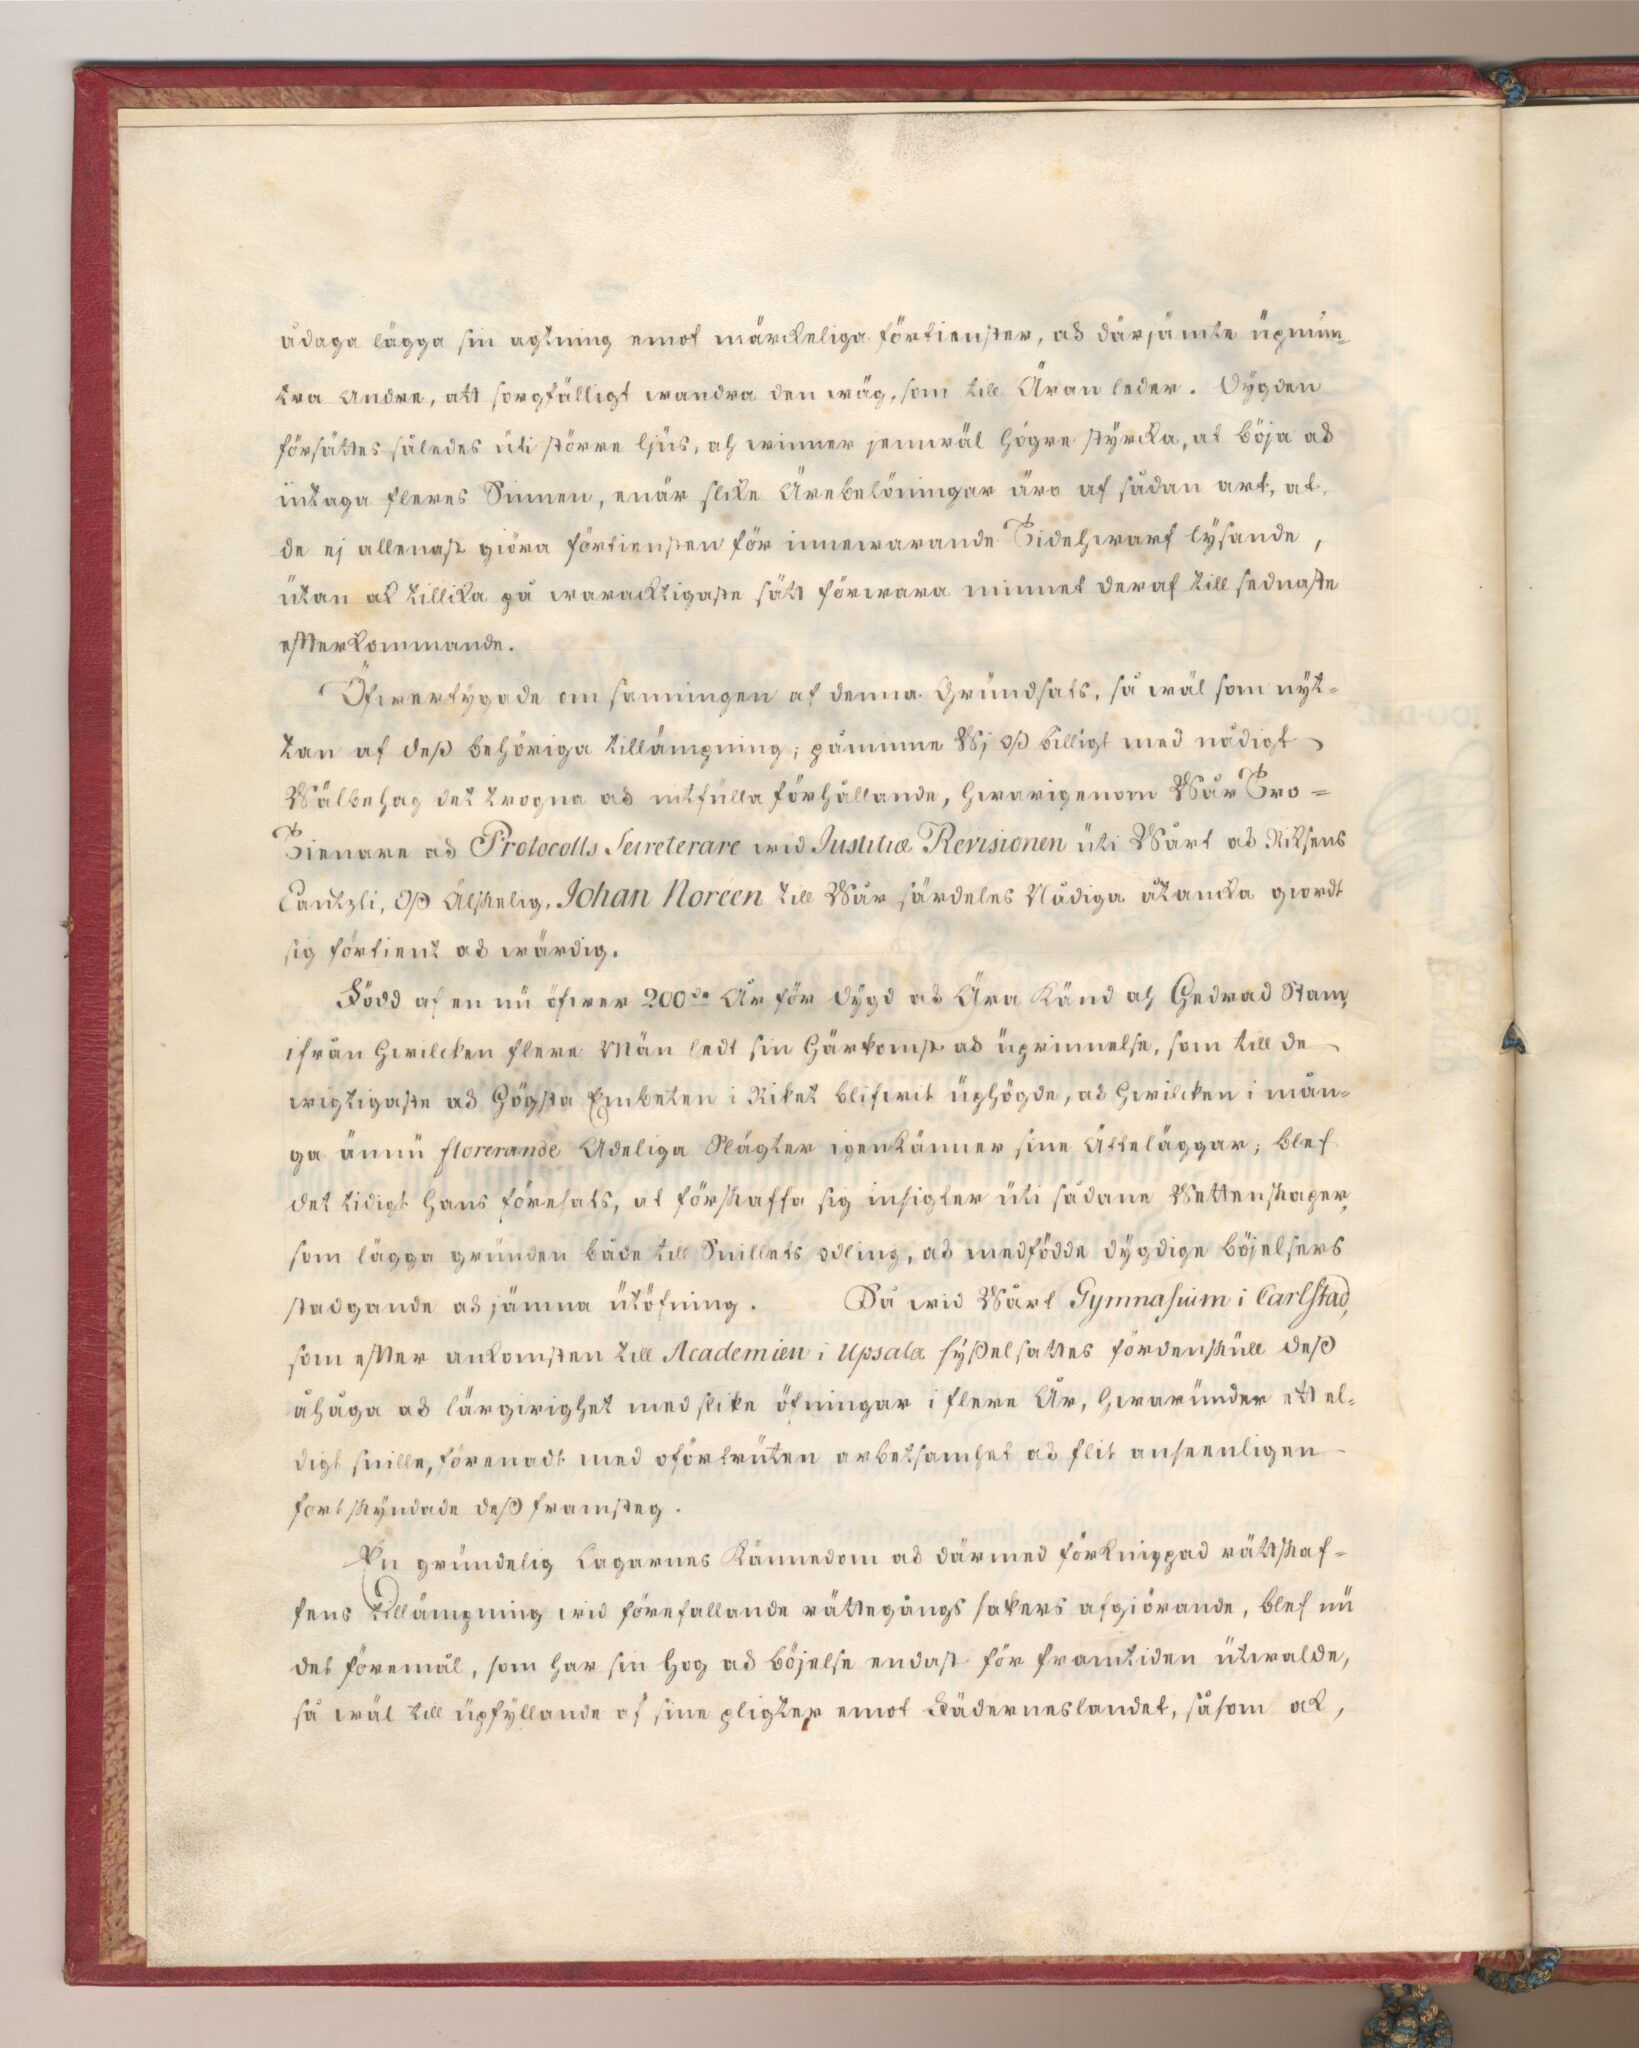 ådaga lägga sin agtning emot märckeliga förtienster, och därjämte upmun-
tra Andre, att sorgfälligt wandra den wäg, som till Äran leder. Dygden
försättes således uti större ljus, och winner jemwäl högre styrcka, at böja och
intaga fleres Sinnen, enär slike Ärebelöningar äro af sådan art, at
de ej allenast giöra förtiensten för innewarande Tidehwarf lysande,
utan ock tillika på waracktigaste sätt förwara minnet deraf till sednaste
efterkommande.
Öfwertygade om sanningen af denna Grundsats, så wäl som nyt-
tan af dess behöriga tillämpning, påminne Wj oss billigt med nådigt
Wälbehag det trogna och nitfulla förhållande, hwarigenom Wår Tro-
Tienare och Protocolls Secreterare wid Justitiæ Revisionen uti Wårt och Riksens
Cantzli, Oss Älskelig, Johan Noréen till Wår särdeles Nådiga åtancka giordt
sig förtient och wärdig.
Född af en nu öfwer 200de År för dygd och Ära Känd och Hedrad Stam,
ifrån hwilcken flere Män ledt sin Härkomst och uprinnelse, som till de
wigtigaste och Högsta Embeten i Riket blifwit uphögde, och hwilcken i mån-
ga ännu florerande Adeliga Slägter igenkänner sine Ätteläggar; blef
det tidigt hans föresats, at förskaffa sig insigter uti sådane Wettenskaper,
som lägga grunden både till Snillets odling, och medfödde dygdige böjelsers
stadgande och jämna utöfning. Så wid Wårt Gymnasium i Carlstad,
som efter ankomsten till Academien i Upsala sysselsattes fördenskull dess
åhåga och lärgirighet med slike öfningar i flere År, hwarunder ett el-
digt snille, förenadt med oförtruten arbetsamhet och flit anseenligen
fortskyndade dess framsteg.
En grundelig Lagarnes Kännedom och därmed förknippad rättskaf-
fens tillämpning wid förefallande rättegångs sakers afgiörande, blef nu
det föremål, som har sin hog och böjelse endast för framtiden utwalde,
så wäl till upfyllande af sine pligter emot Fäderneslandet, såsom ock,